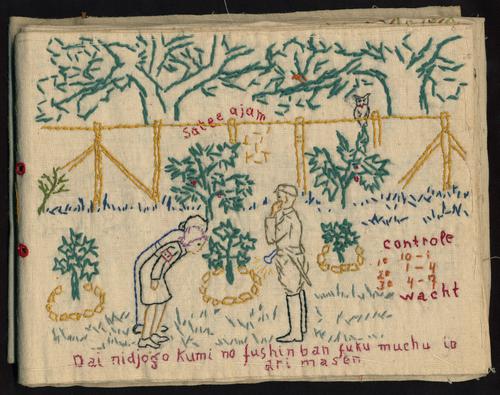 Satee ajam
controle
1e 10-1
2e 1-4
3e 4-7
wacht
Dai nidjogo Kumi no fushin ban fuku muchu io
ari masen